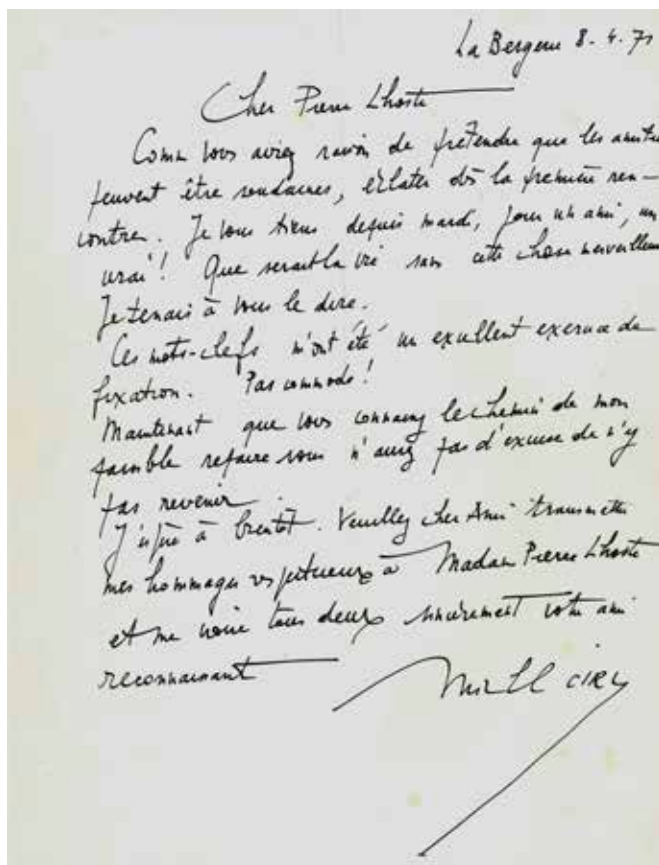 La Bergerie 8-4-71
Cher Pierre Lhoste
Comme vous aviez raison de prétendre que les amitiés
peuvent être soudaines, éclater dès la première ren-
contre. Je vous tiens depuis mardi, pour un ami, un
vrai! Que serait la vie sans cette chose merveilleuse
Je tenais à vous le dire.
Ces mots-clefs m'ont été un excellent exercice de
fixation. Pas commode!
Maintenant que vous connaissez le chemin de mon
paisible repaire vous n'aurez pas d'excuse de n'y
pas revenir
J'espère à bientôt. Veuillez cher Ami transmettre
mes hommages respectueux à Madame Pierre Lhoste
et me croire tous deux sincèrement votre ami
reconnaissant
Michel CIRY